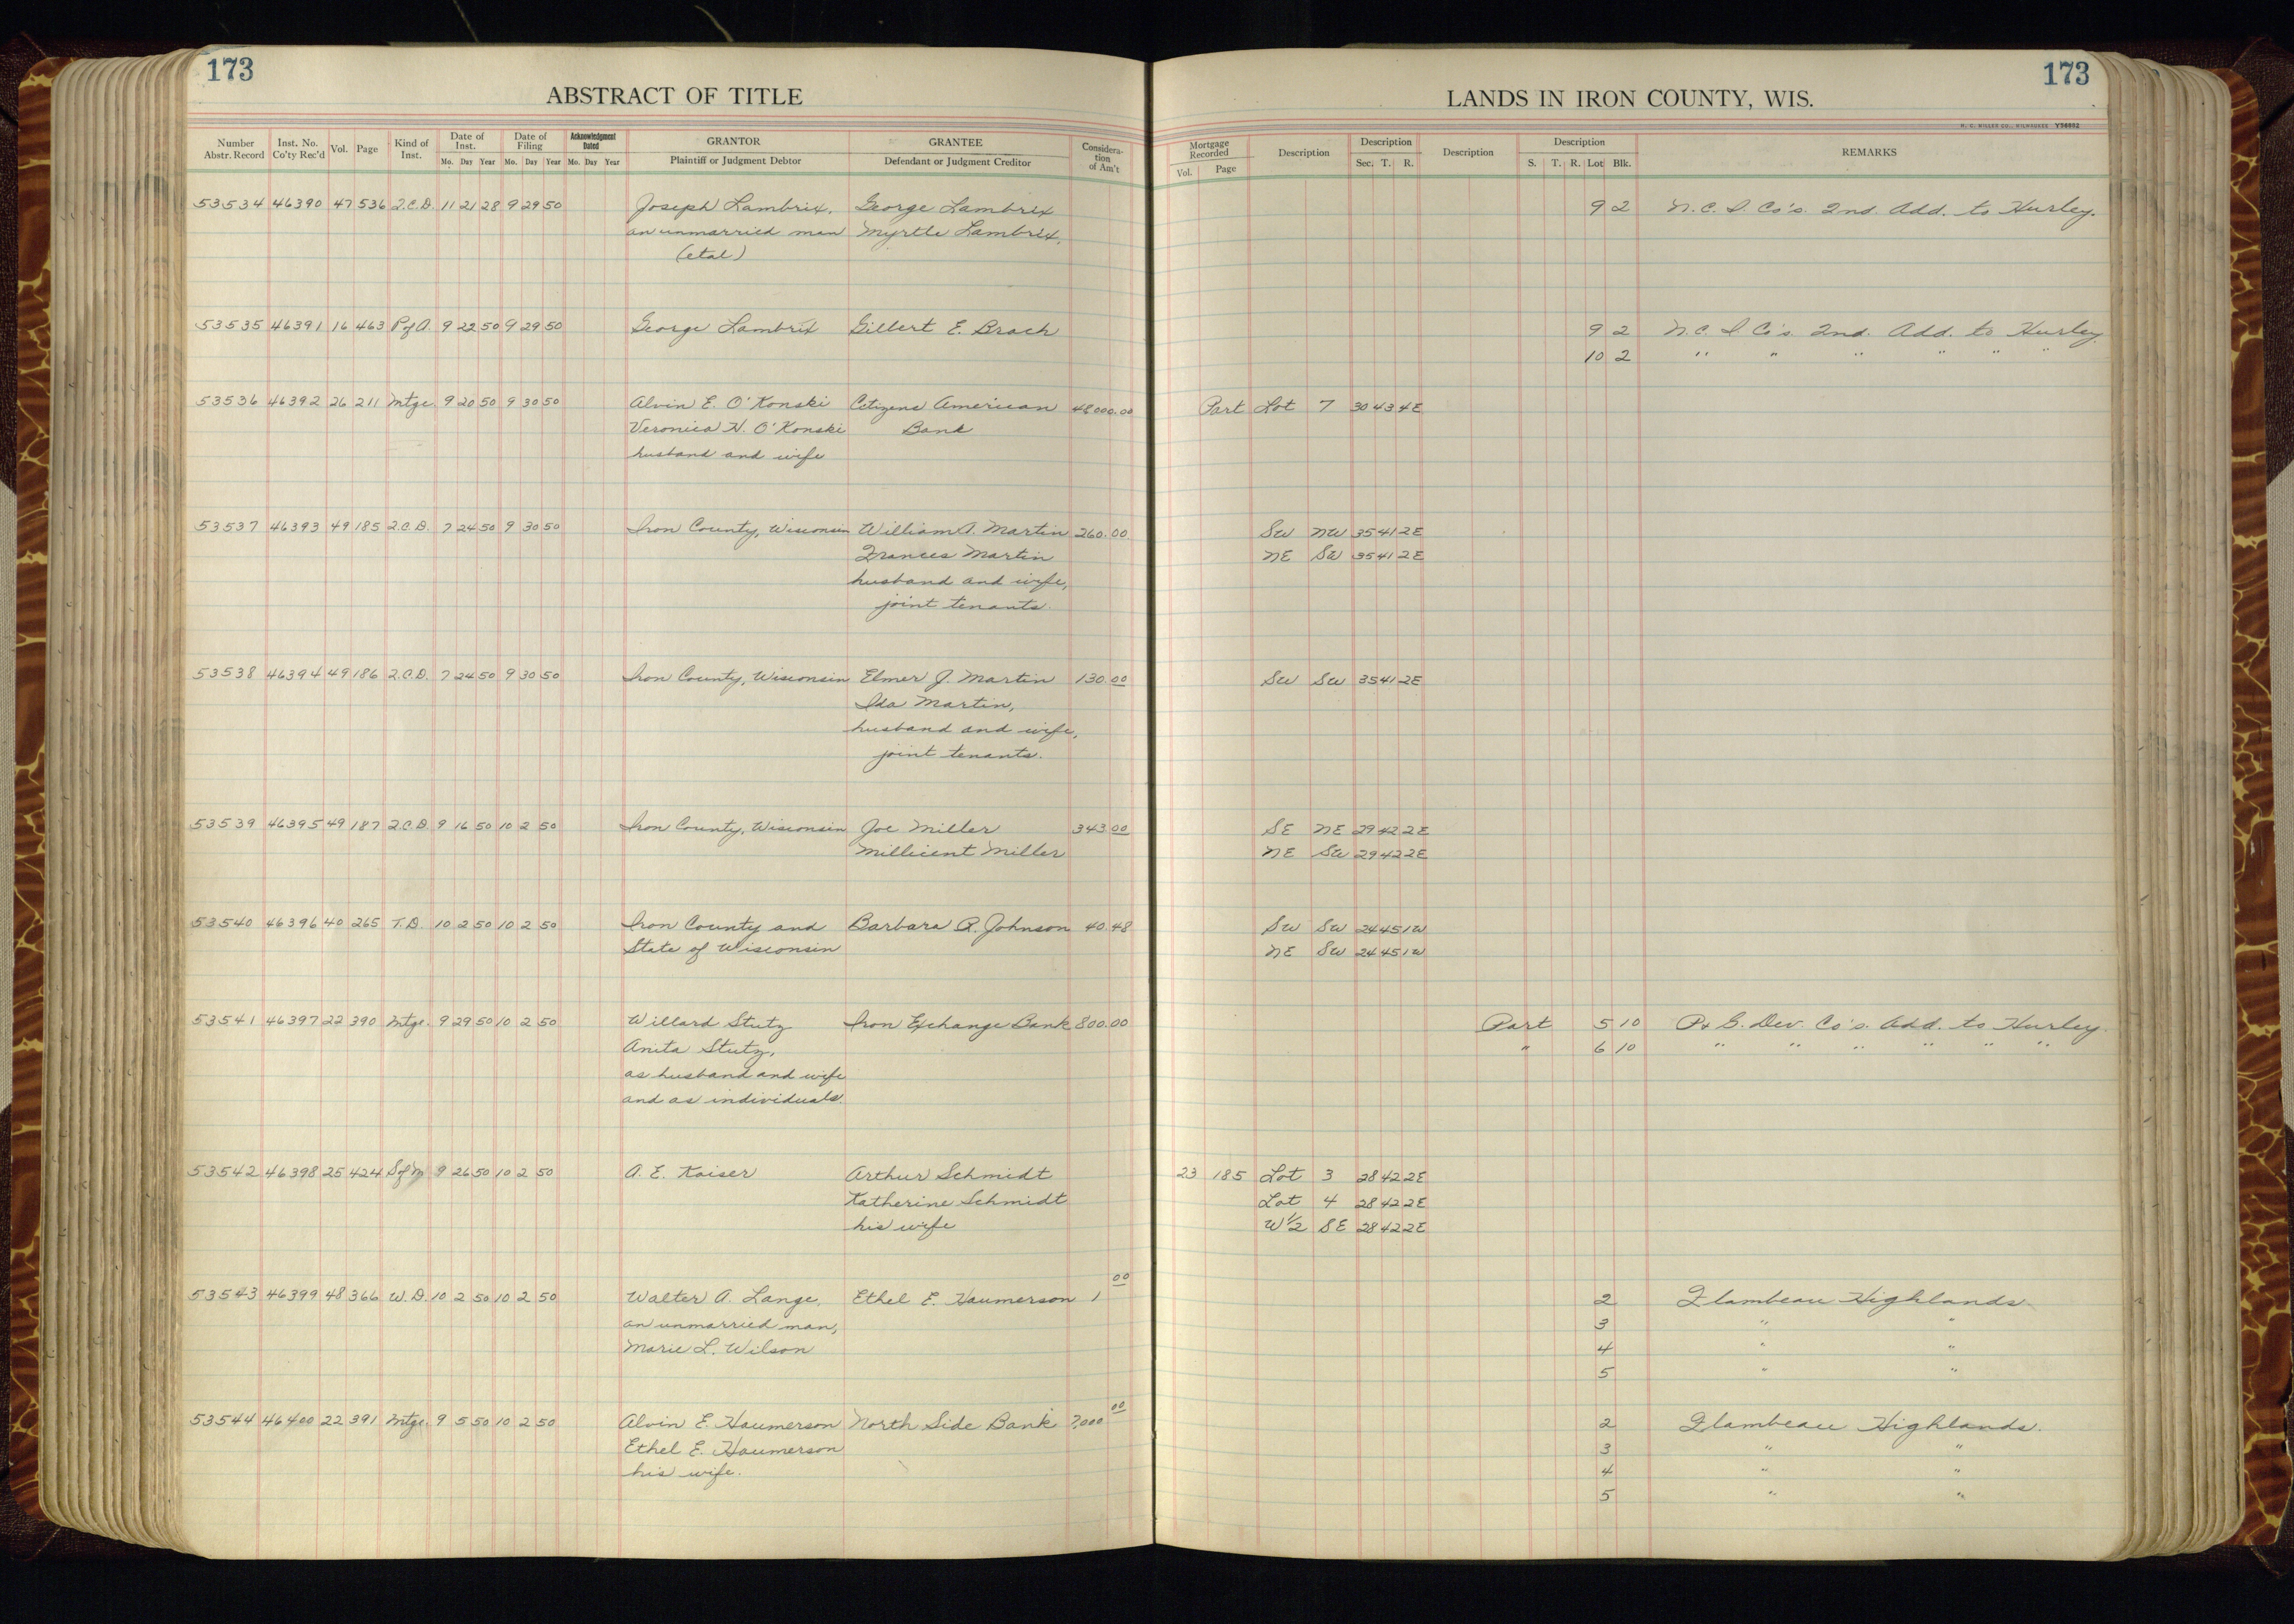 173
173
ABSTRACT OF TITLE
LANDS IN IRON COUNTY, WIS.
H. C. MILLER CO., MILWAUKEE Y56982
Number Abstr. Record | Inst. No. Co'ty Rec'd | Vol. | Page | Kind of Inst. | Date of Inst. Mo. Day Year | Date of Filing Mo. Day Year | Acknowledgment Dated Mo. Day Year | GRANTOR Plaintiff or Judgment Debtor | GRANTEE Defendant or Judgment Creditor | Consideration of Am't | Mortgage Recorded Vol. Page | Description | Description Sec. T. R. | Description | Description S. T. R. Lot Blk. | REMARKS
53534 46390 47 536 Q.C.D. 11 21 28 9 29 50 Joseph Lambrix, George Lambrix 9 2 N.C.I. Co's. 2nd. Add. to Hurley.
an unmarried man Myrtle Lambrix,
(etal)
53535 46391 16 463 P of A. 9 22 50 9 29 50 George Lambrix Gilbert E. Brach 9 2 N.C.I. Co's. 2nd. Add. to Hurley.
10 2 " " " " " "
53536 46392 26 211 Mtge. 9 20 50 9 30 50 Alvin E. O'Konski Citizens American 48000.00 Part Lot 7 30 43 4E
Veronica H. O'Konski Bank
husband and wife
53537 46393 49 185 Q.C.D. 7 24 50 9 30 50 Iron County, Wisconsin William A. Martin 260.00 SW NW 35 41 2E
Frances Martin NE SW 35 41 2E
husband and wife,
joint tenants.
53538 46394 49 186 Q.C.D. 7 24 50 9 30 50 Iron County, Wisconsin Elmer J. Martin 130.00 SW SW 35 41 2E
Ida Martin,
husband and wife,
joint tenants.
53539 46395 49 187 Q.C.D. 9 16 50 10 2 50 Iron County, Wisconsin Joe Miller 343.00 SE NE 29 42 2E
Millicent Miller NE SW 29 42 2E
53540 46396 40 265 T.D. 10 2 50 10 2 50 Iron County and Barbara R. Johnson 40.48 SW SW 24 45 1W
State of Wisconsin NE SW 24 45 1W
53541 46397 22 390 Mtge. 9 29 50 10 2 50 Willard Stutz Iron Exchange Bank 800.00 Part 5 10 P. & G. Dev. Co's. Add. to Hurley.
Anita Stutz, " 6 10 " " " " " "
as husband and wife
and as individuals.
53542 46398 25 424 S of M 9 26 50 10 2 50 A. E. Kaiser Arthur Schmidt 23 185 Lot 3 28 42 2E
Katherine Schmidt Lot 4 28 42 2E
his wife W½ SE 28 42 2E
53543 46399 48 366 W.D. 10 2 50 10 2 50 Walter A. Lange, Ethel E. Haumerson 1 00 2 Flambeau Highlands
an unmarried man, 3 " "
Marie L. Wilson 4 " "
5 " "
53544 46400 22 391 Mtge. 9 5 50 10 2 50 Alvin E. Haumerson North Side Bank 7,000 00 2 Flambeau Highlands.
Ethel E. Haumerson 3 " "
his wife. 4 " "
5 " "